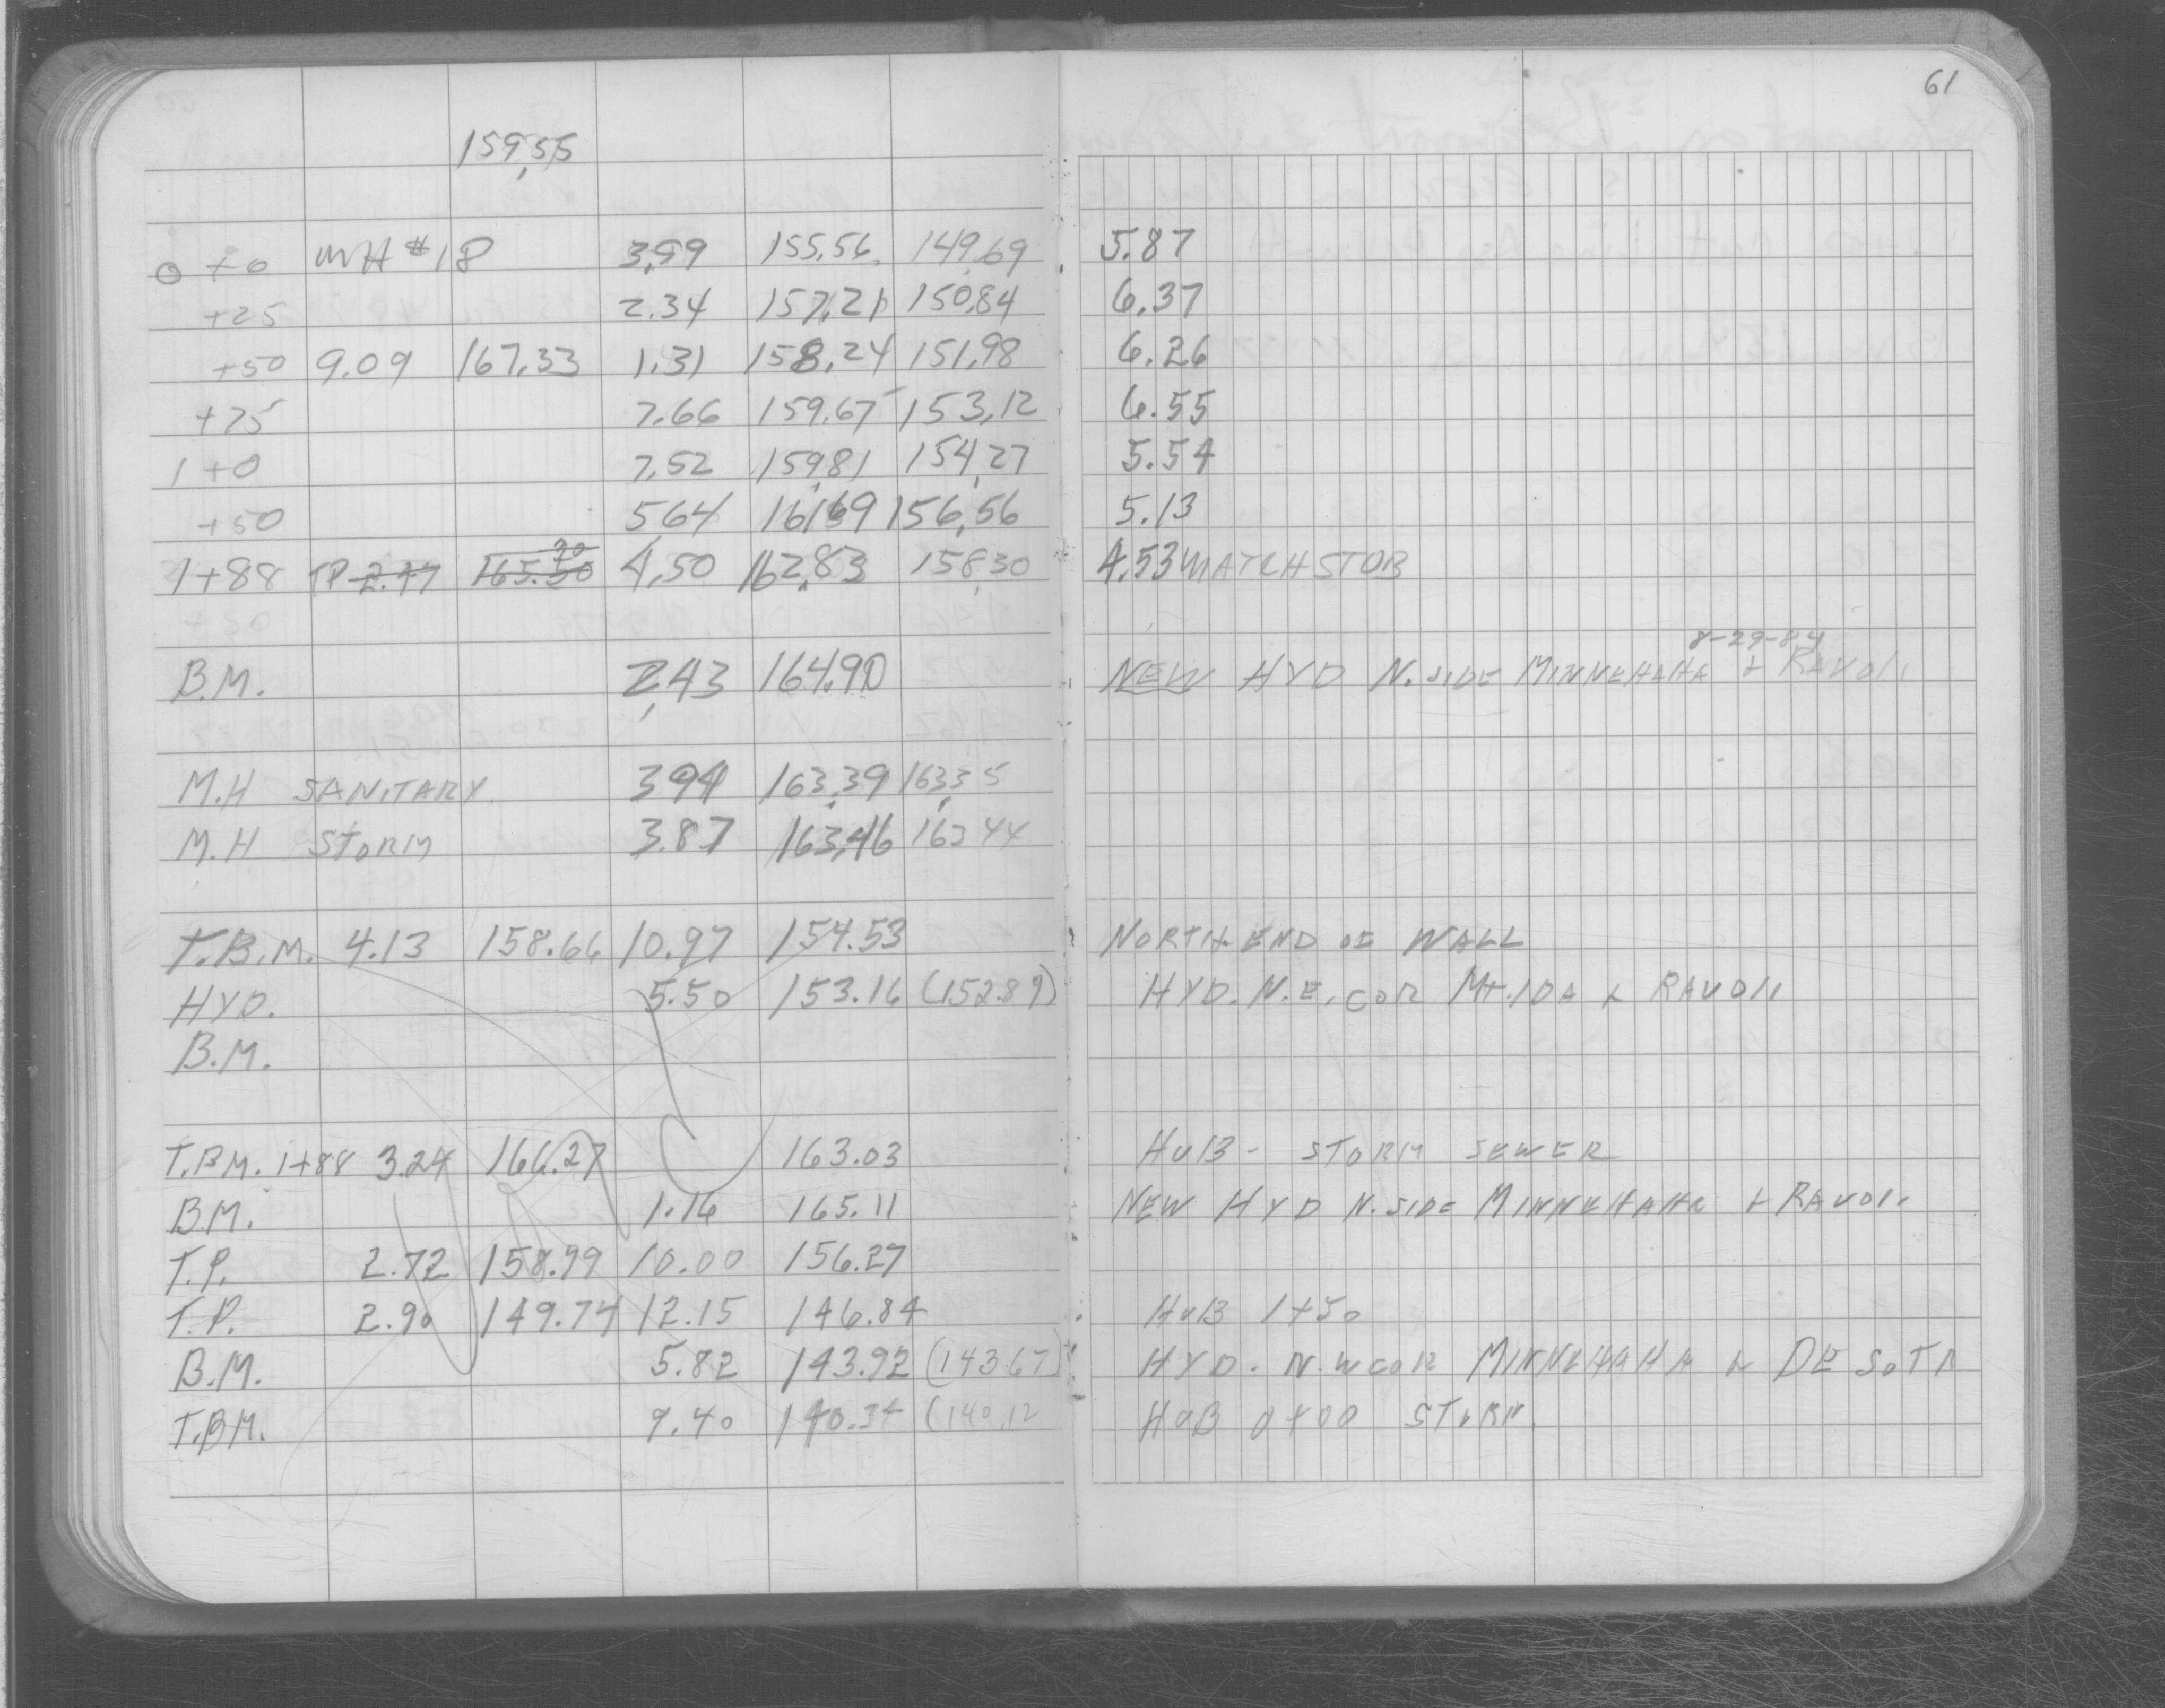 61
159.55
0+0 MH #18 3.99 155.56 149.69 5.87
+25 2.34 157.21 150.84 6.37
+50 9.09 167.33 1.31 158.24 151.98 6.26
+75 7.66 159.67 153.12 6.55
1+0 7.52 159.81 154.27 5.54
+50 5.64 161.69 156.56 5.13
1+88 TP 2.47 4.50 162.83 158.30 4.53 MATCH STOB
8-29-84
B.M. 2.43 164.90 NEW HYD N. SIDE MINNEHAHA & RAVOLI
M.H SANITARY 3.94 163.39 163.35
M.H STORM 3.87 163.46 163.44
T.B.M. 4.13 158.66 10.97 154.53 NORTH END OF WALL
HYD. 5.50 153.16 (152.89) HYD. N.E. COR MT. IDA & RAVOLI
B.M.
T.B.M. 1+88 3.24 166.27 163.03 HUB - STORM SEWER
B.M. 1.16 165.11 NEW HYD N. SIDE MINNEHAHA & RAVOLI
T.P. 2.72 158.99 10.00 156.27
T.P. 2.90 149.74 12.15 146.84 HUB 1+50
B.M. 5.82 143.92 (143.67) HYD. N.W COR MINNEHAHA & DE SOTA
T.B.M. 9.40 140.34 (140.12 HUB 0+00 STORM